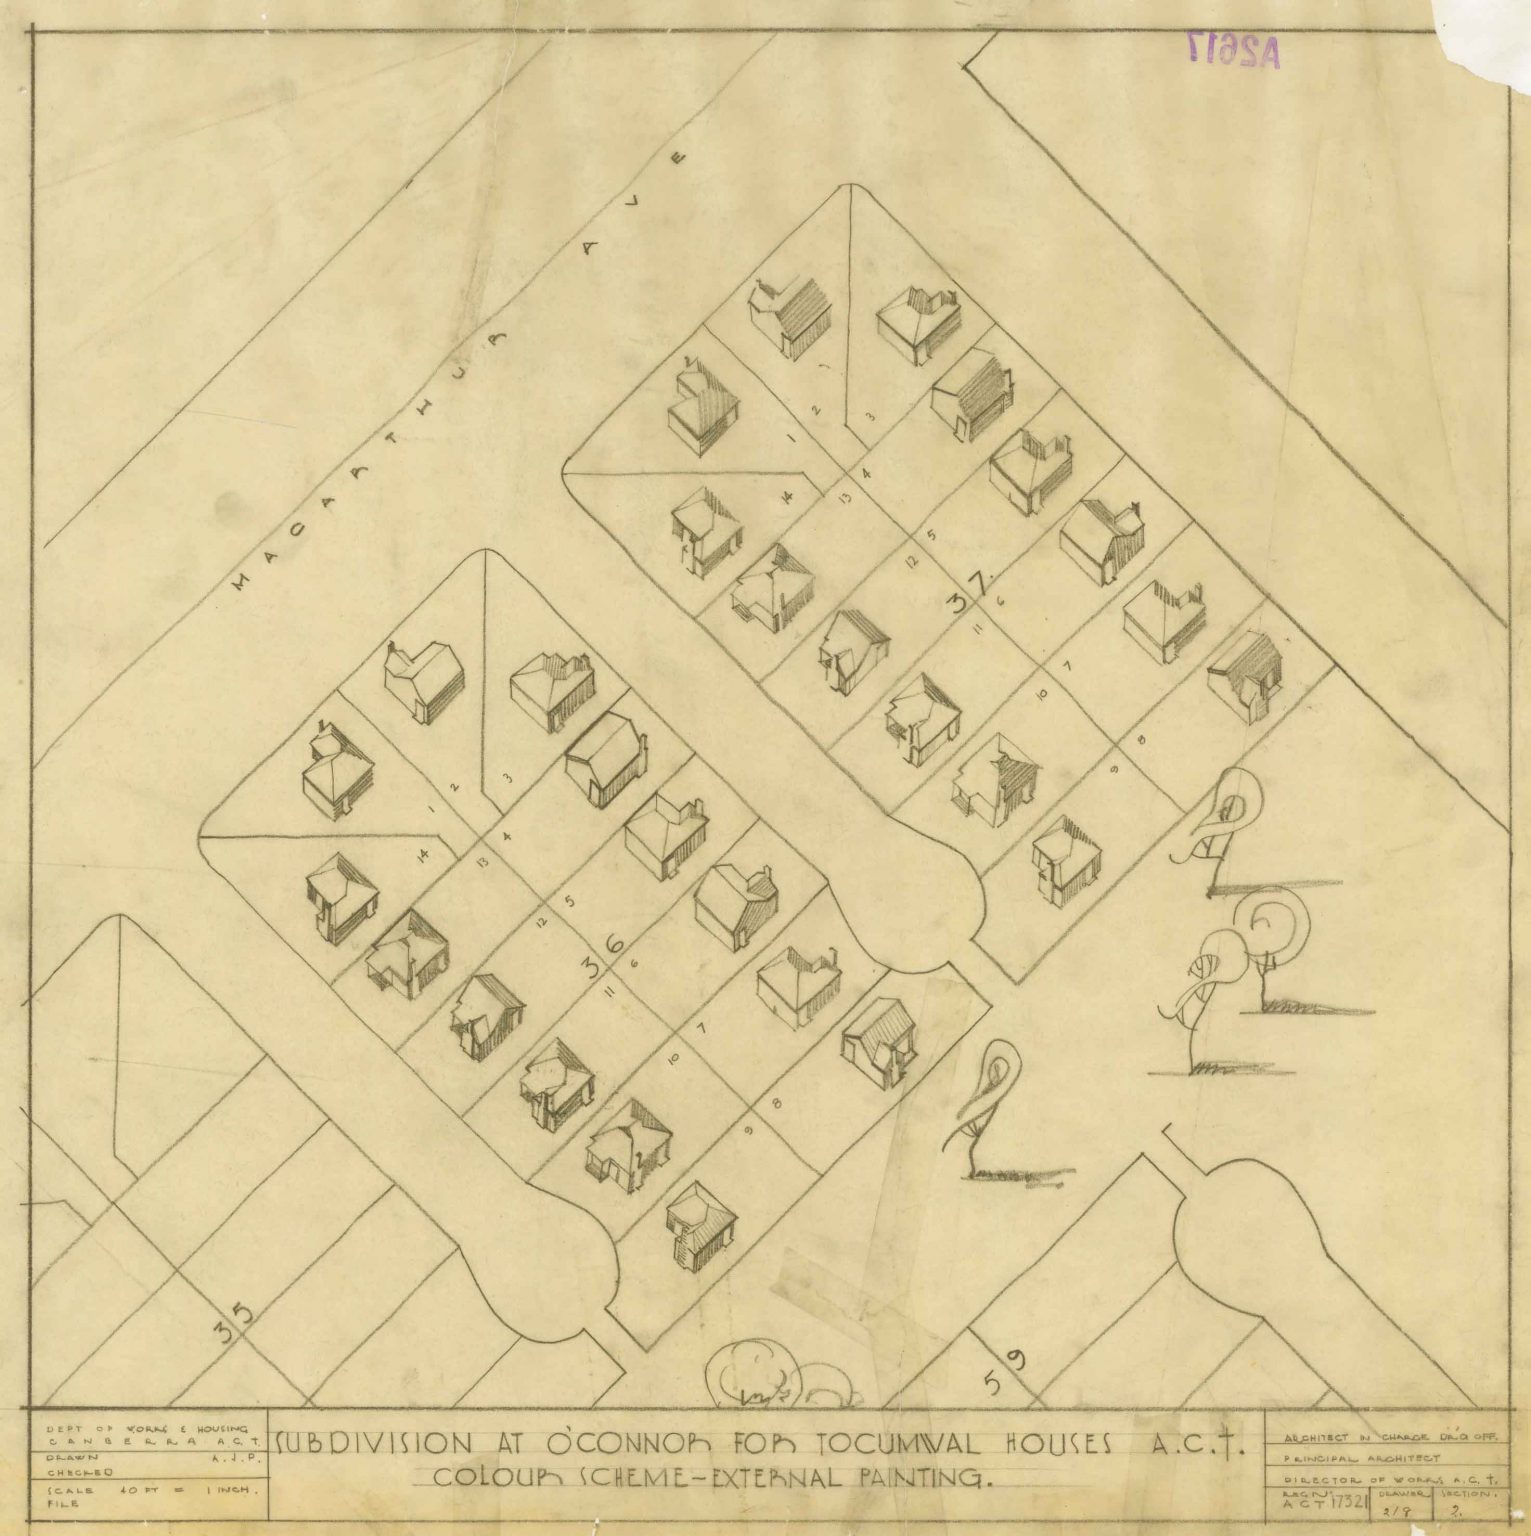 A2617
MACARTHUR AVE
1
2
3
4
5
6
7
8
9
10
11
12
13
14
37
1
2
3
4
5
6
7
8
9
10
11
12
13
14
36
35
59
DEPT OF WORKS & HOUSING
CANBERRA A.C.T.
DRAWN A.J.P.
CHECKED
SCALE 40 FT = 1 INCH.
FILE
SUBDIVISION AT O'CONNOR FOR TOCUMWAL HOUSES A.C.T.
COLOUR SCHEME-EXTERNAL PAINTING.
ARCHITECT IN CHARGE DRG OFF.
PRINCIPAL ARCHITECT
DIRECTOR OF WORKS A.C.T.
REGN. ACT 17321
DRAWER 2/8
SECTION. 2.